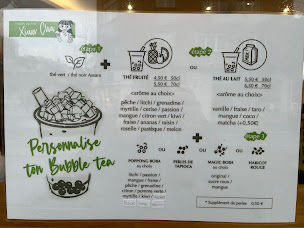 Xiao Chai
étape 1
thé vert / thé noir Assam
Personnalise
ton Bubble tea
THÉ FRUITÉ
4,50 € 50cl
5,50 € 70cl
«arôme au choix»
pêche / litchi / grenadine /
myrtille / cerise / passion /
mangue / citron vert / kiwi /
fraise / ananas / raisin /
roselle / pastèque / melon
ou
étape 2
THÉ AU LAIT
4,50 € 50cl
5,50 € 70cl
«arôme au choix»
vanille / fraise / taro /
mangue / coco /
matcha (+0,50€)
étape 3
POPPING BOBA
au choix
litchi / passion /
mangue / fraise
/ pêche / grenadine /
citron / pomme verte /
myrtille / kiwi /
ou
PERLES DE
TAPIOCA
ou
MAGIC BOBA
au choix
original /
sucre roux /
mangue
ou
HARICOT
ROUGE
* Supplément de perles 0,50 €